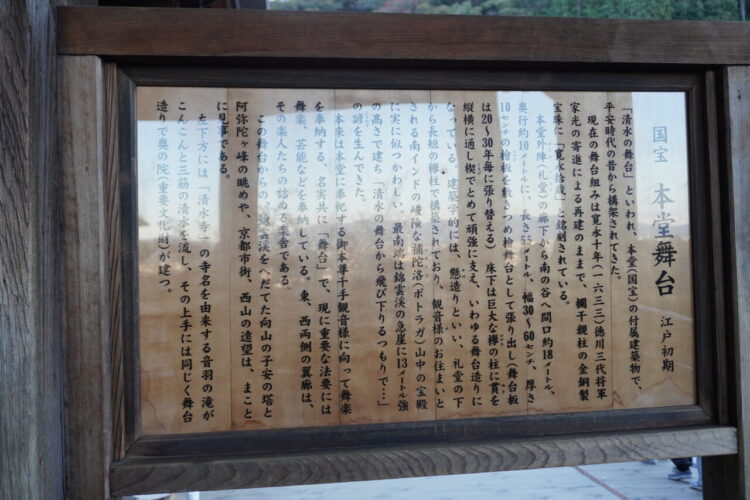 国宝 本堂舞台 江戸初期
「清水の舞台」といわれ、本堂(国宝)の付属建築物で、
平安時代の昔から構架されてきた。
現在の舞台組みは寛永十年(一六三三)徳川三代将軍
家光の寄進による再建のままで、欄干親柱の金銅製
宝珠に「寛永拾歳」と銘刻されている。
本堂外陣(礼堂)の廊下から南の谷へ間口約18メートル、
奥行約10メートルに、長さ5.5メートル 幅30〜60センチ、厚さ
10センチの檜板を敷きつめ桧舞台として張り出し(舞台板
は20〜30年毎に張り替える)床下は巨大な欅の柱に貫を
縦横に通し楔でとめて頑強に支え、いわゆる舞台造りに
なっている。建築学的には、懸造りといい、礼堂の下
から長短の欅柱で構築されており、観音様のお住まいと
される南インドの峻険な補陀洛(ポトラガ)山中の宝殿
に実に似つかわしい。最南端は錦雲渓の急崖に13メートル強
の高さで建ち「清水の舞台から飛び下りるつもりで…」
の諺を生んできた。
本来は本堂に奉祀する御本尊千手観音様に向って舞楽
を奉納する、名実共に「舞台」で、現に重要な法要には
舞楽、芸能などを奉納している。東、西両側の翼廊は、
その楽人たちの詰める楽舎である。
この舞台からの、錦雲渓をへだてた向山の子安の塔と
阿弥陀ヶ峰の眺めや、京都市街、西山の遠望は、まこと
に見事である。
左下方には「清水寺」の寺名を由来する音羽の滝が
こんこんと三筋の清水を流し、その上手には同じく舞台
造りで奥の院(重要文化財)が建つ。